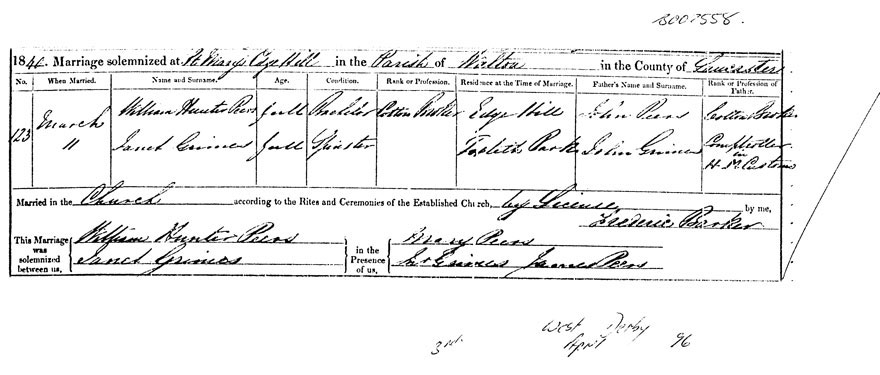 BC07558.
184. Marriage solemnized at St Mary's Edge Hill in the Parish of Walton in the County of Lancaster
No. When Married. Name and Surname. Age. Condition. Rank or Profession. Residence at the Time of Marriage. Father's Name and Surname. Rank or Profession of Father.
123 March 11 William Hunter Peers full Bachelor Cotton Broker Edge Hill John Peers Cotton Broker
Janet Grimes full Spinster Toxteth Park John Grimes Comptroller in H. M. Customs
Married in the Church according to the Rites and Ceremonies of the Established Church, by License by me,
Frederick Barker
This Marriage was solemnized between us, William Hunter Peers
Janet Grimes
in the Presence of us, Mary Peers
Grimes James Peers
West Derby
3rd April 96